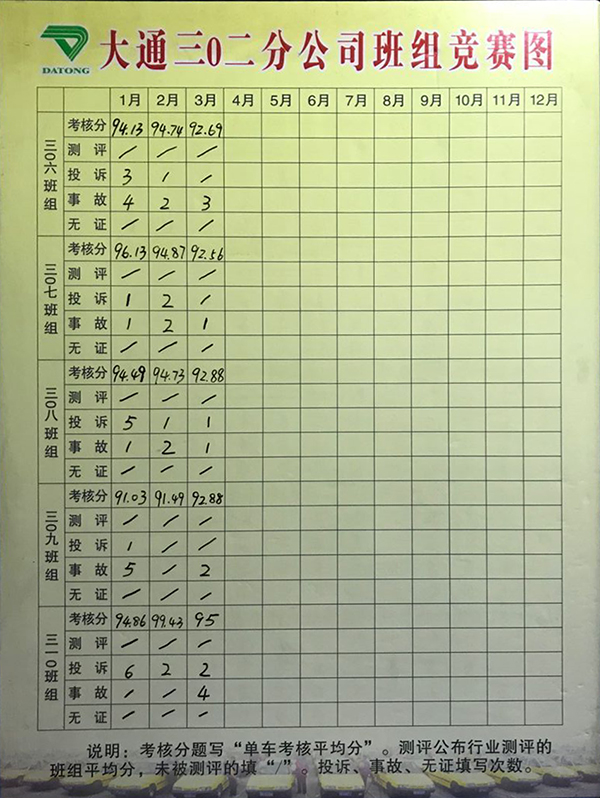 DATONG
大通三0二分公司班组竞赛图
1月 2月 3月 4月 5月 6月 7月 8月 9月 10月 11月 12月
三0六班组
考核分 94.13 94.74 92.69
测评 / / /
投诉 3 1 /
事故 4 2 3
无证 / / /
三0七班组
考核分 96.13 94.87 92.56
测评 / / /
投诉 1 2 /
事故 1 2 1
无证 / / /
三0八班组
考核分 94.49 94.73 92.88
测评 / / /
投诉 5 1 1
事故 1 2 1
无证 / / /
三0九班组
考核分 91.03 91.49 92.88
测评 / / /
投诉 1 / /
事故 5 / 2
无证 / / /
三一0班组
考核分 94.86 99.43 95
测评 / / /
投诉 6 2 2
事故 / / 4
无证 / / /
说明：考核分题写“单车考核平均分”。测评公布行业测评的
班组平均分，未被测评的填“/”。投诉、事故、无证填写次数。